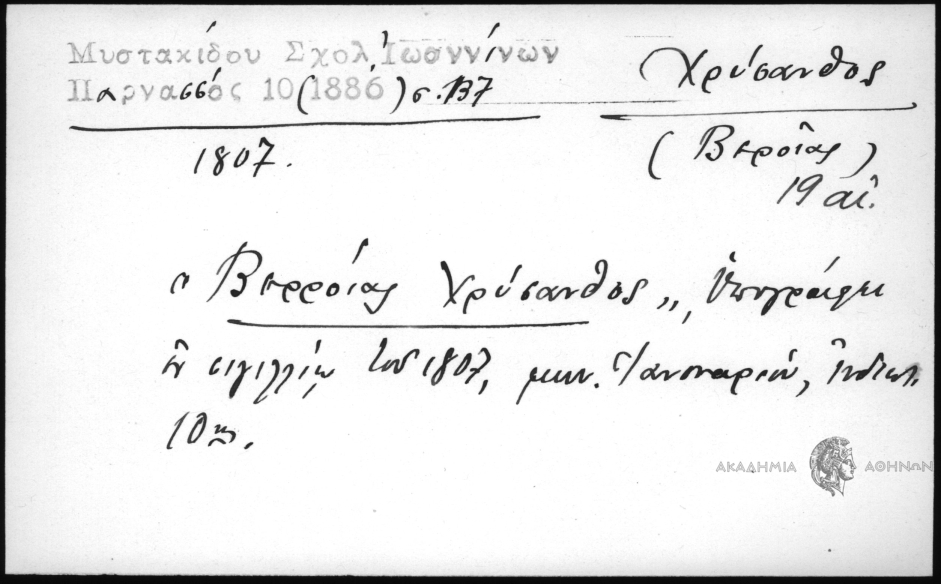 Μυστακίδου Σχολ. Ἰωαννίνων
Παρνασσός 10 (1886) σ. 137
Χρύσανθος
(Βεροίας)
19 αἰ.
1807.
ὁ Βερροίας Χρύσανθος „ ὑπογράφει
ἐν σιγιλλίῳ τοῦ 1807, μην. Ἰανουαρίου, ἰνδικτ.
10ης.
ΑΚΑΔΗΜΙΑ ΑΘΗΝΩΝ